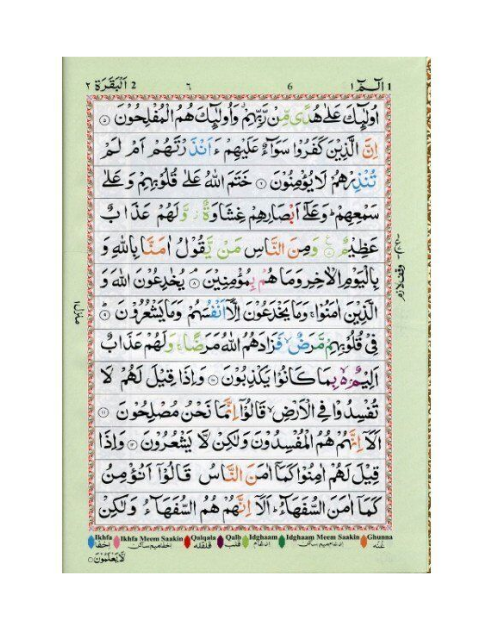 ٢ اَلْبَقَرَة 2 ٦ 6 الٓمّٓ ١ 1
اُولٰٓئِكَ عَلٰى هُدًى مِّنْ رَّبِّهِمْ وَاُولٰٓئِكَ هُمُ الْمُفْلِحُوْنَ ٥
اِنَّ الَّذِيْنَ كَفَرُوْا سَوَآءٌ عَلَيْهِمْ ءَاَنْذَرْتَهُمْ اَمْ لَمْ
تُنْذِرْهُمْ لَا يُؤْمِنُوْنَ ٦ خَتَمَ اللّٰهُ عَلٰى قُلُوْبِهِمْ وَعَلٰى
سَمْعِهِمْ ؕ وَعَلٰٓى اَبْصَارِهِمْ غِشَاوَةٌ وَّلَهُمْ عَذَابٌ
عَظِيْمٌ ٧ وَمِنَ النَّاسِ مَنْ يَّقُوْلُ اٰمَنَّا بِاللّٰهِ وَ
بِالْيَوْمِ الْاٰخِرِ وَمَا هُمْ بِمُؤْمِنِيْنَ ٨ يُخٰدِعُوْنَ اللّٰهَ وَ
الَّذِيْنَ اٰمَنُوْا ۚ وَمَا يَخْدَعُوْنَ اِلَّآ اَنْفُسَهُمْ وَمَا يَشْعُرُوْنَ ٩
فِيْ قُلُوْبِهِمْ مَّرَضٌ ۙ فَزَادَهُمُ اللّٰهُ مَرَضًا ۚ وَلَهُمْ عَذَابٌ
اَلِيْمٌۢ بِمَا كَانُوْا يَكْذِبُوْنَ ١٠ وَاِذَا قِيْلَ لَهُمْ لَا
تُفْسِدُوْا فِي الْاَرْضِ ۙ قَالُوْٓا اِنَّمَا نَحْنُ مُصْلِحُوْنَ ١١
اَلَآ اِنَّهُمْ هُمُ الْمُفْسِدُوْنَ وَلٰكِنْ لَّا يَشْعُرُوْنَ ١٢ وَاِذَا
قِيْلَ لَهُمْ اٰمِنُوْا كَمَآ اٰمَنَ النَّاسُ قَالُوْٓا اَنُؤْمِنُ
كَمَآ اٰمَنَ السُّفَهَآءُ ؕ اَلَآ اِنَّهُمْ هُمُ السُّفَهَآءُ وَلٰكِنْ
Ikhfa Ikhfa Meem Saakin Qalqala Qalb Idghaam Idghaam Meem Saakin Ghunna
اخفا اخفا میم ساکن قلقلہ قلب ادغام ادغام میم ساکن غنہ
لَّا يَعْلَمُوْنَ ١٣
وقف لازم
منزل ١